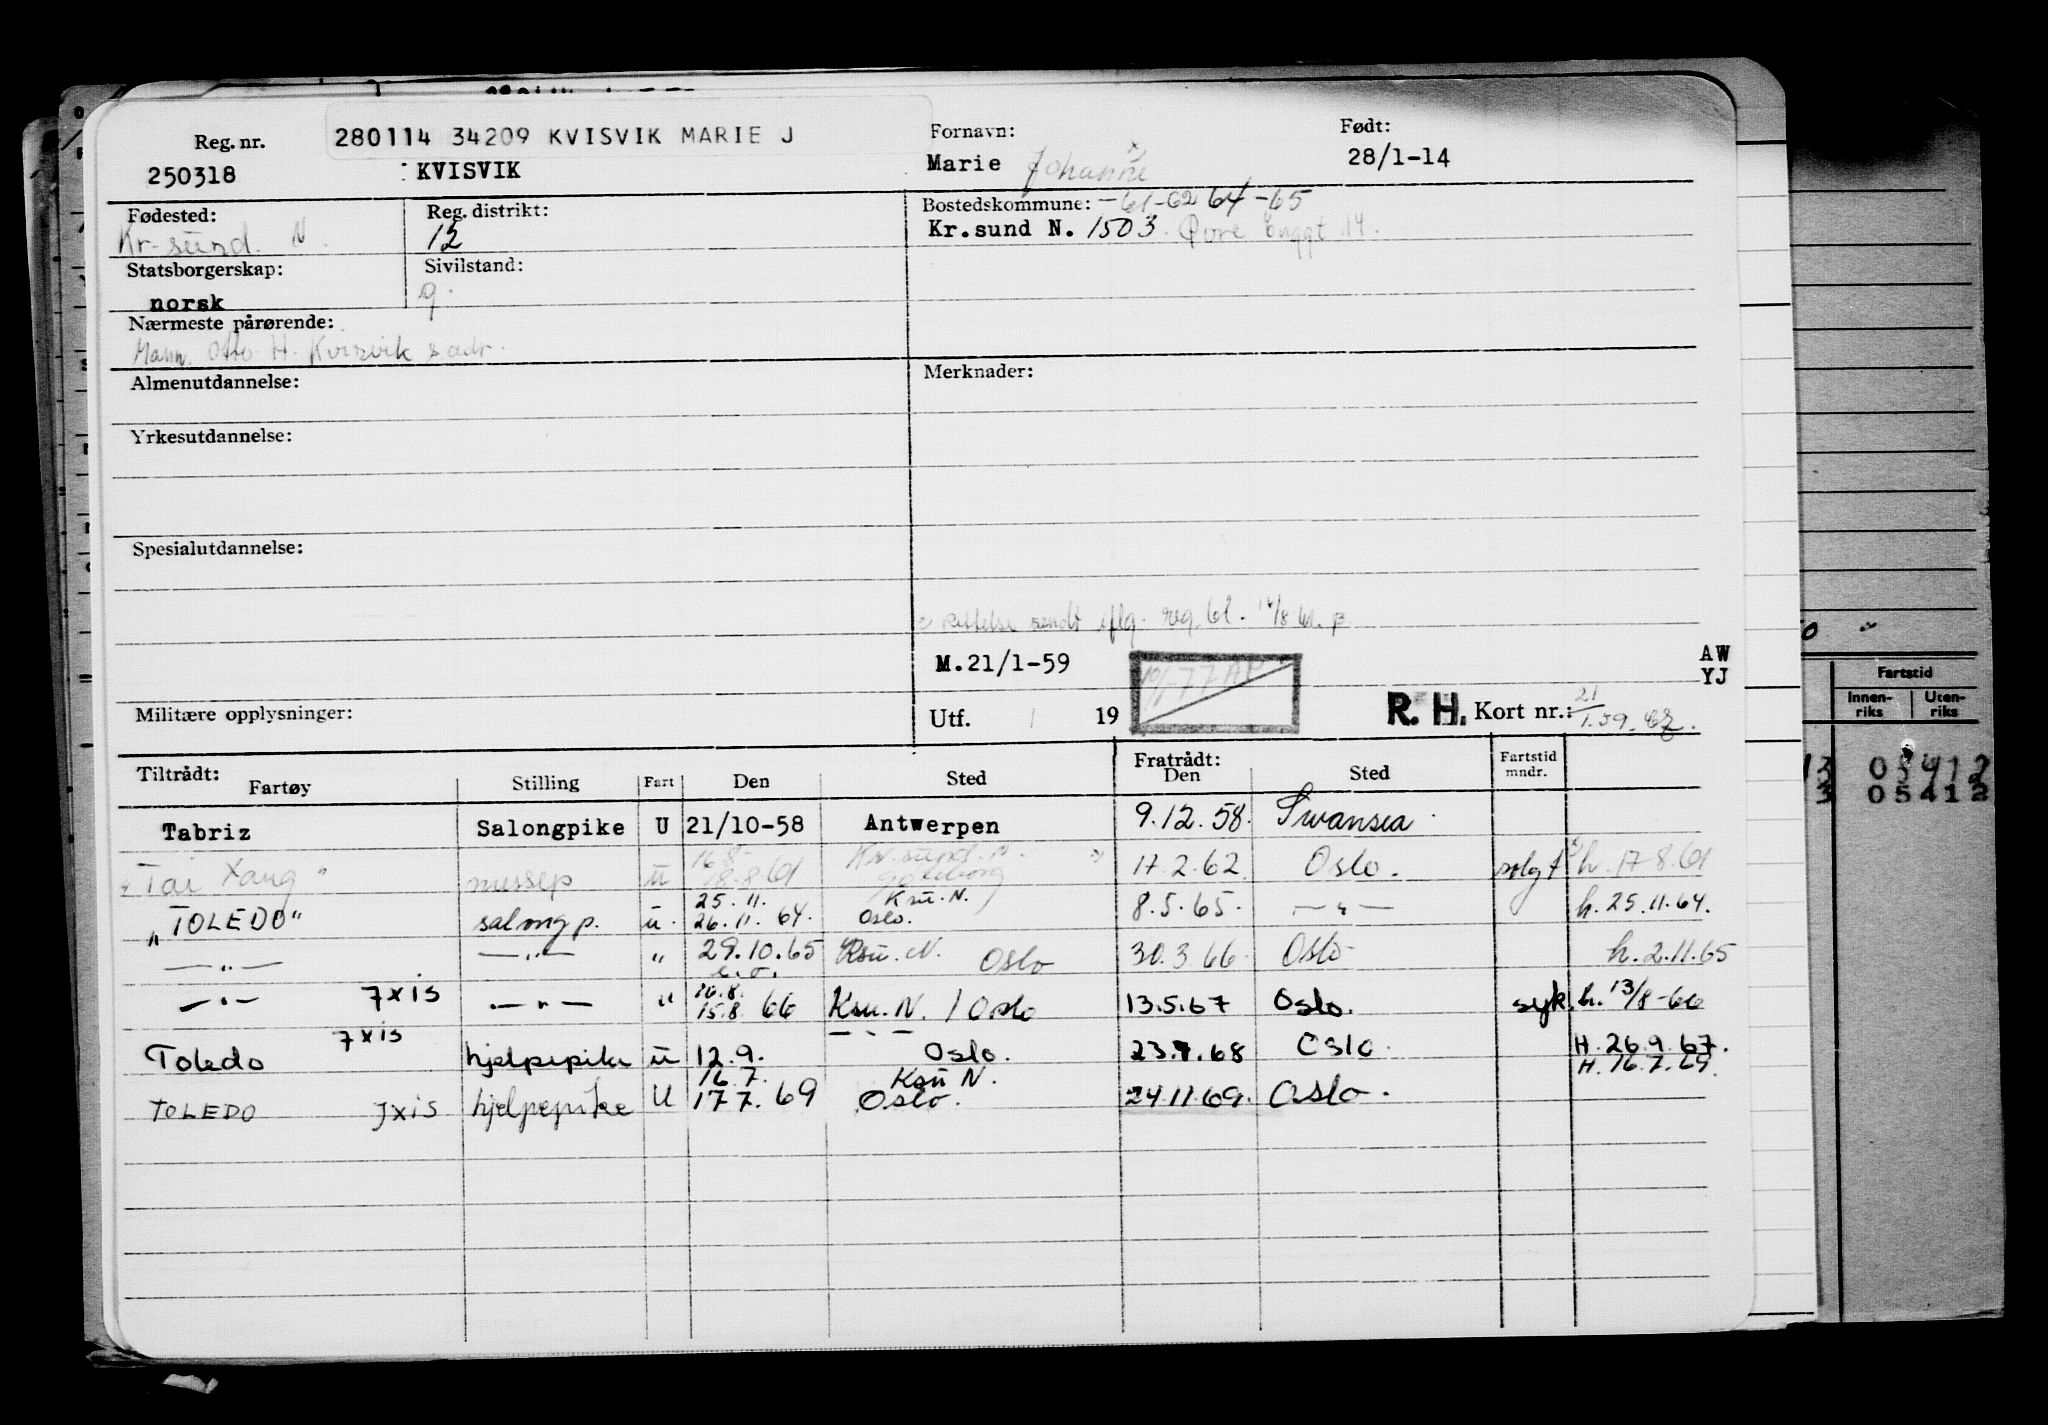 280114 34209 KVISVIK MARIE J
Reg. nr. Fornavn: Født:
250318 KVISVIK Marie Johanne 28/1-14
Fødested: Reg. distrikt: Bostedskommune: -61-62 64-65
Kr.sund. N. 12 Kr.sund N. 1503. Øvre Enggt 14.
Statsborgerskap: Sivilstand:
norsk g.
Nærmeste pårørende:
Mann. Otto H. Kvisvik s adr.
Almenutdannelse: Merknader:
Yrkesutdannelse:
Spesialutdannelse:
Rettelse sendt iflg. reg. bl.
M.21/1-59 AW
YJ
Militære opplysninger: Utf. 19 R. H. Kort nr.: 21/1.59.
Tiltrådt: Fratrådt:
Fartøy Stilling Fart Den Sted Den Sted Fartstid mndr.
Tabriz Salongpike U 21/10-58 Antwerpen 9.12.58. Swansea
"Tai Yang" messep u 16.8- 18.8.61 Kr.sund. N. Göteborg 17.2.62 Oslo. solgt h. 17.8.61
"TOLEDO" salong p. u. 25.11. 26.11.64. Ksu. N. Oslo. 8.5.65. —"— h. 25.11.64.
—"— —"— " 29.10.65 e.o. Ksu. N. Oslo 30.3.66 Oslo h. 2.11.65
—"— 7xis —"— " 16.8. 15.8. 66 Ksu. N. / Oslo 13.5.67 Oslo. syk. h. 13/8-66
Toledo 7xis hjelpepike u 12.9. —"— Oslo. 23.7.68 Oslo. H. 26.9.67.
TOLEDO 7xis hjelpepike U 16.7. 17.7.69 Ksu N. Oslo. 24.11.69. Oslo. H. 16.7.69
Fartstid
Innenriks Utenriks
13 0 5412
3 0 5412